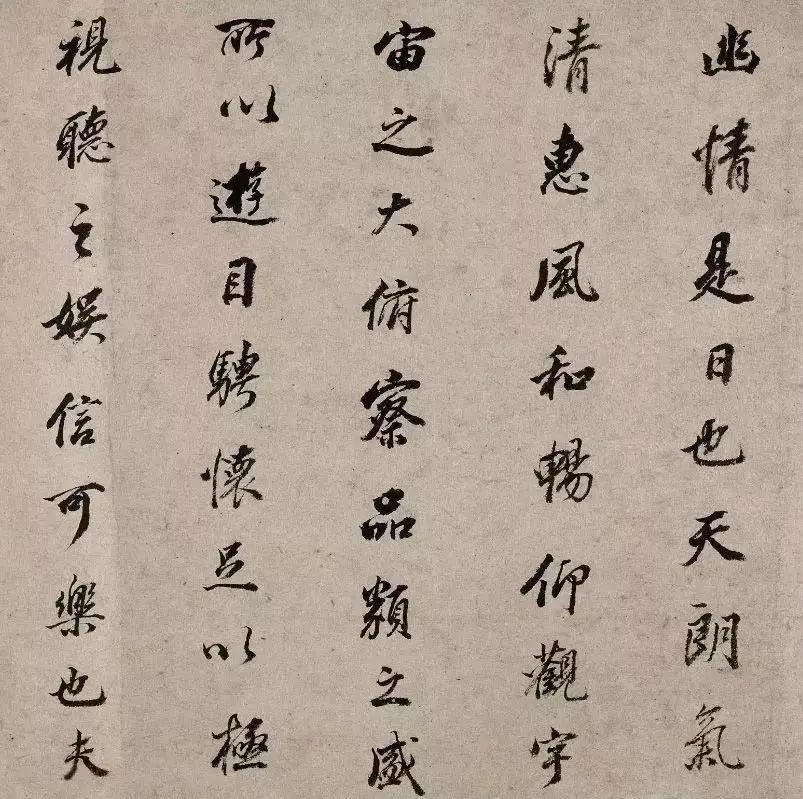 幽情是日也天朗氣
清惠風和暢仰觀宇
宙之大俯察品類之盛
所以遊目騁懷足以極
視聽之娛信可樂也夫